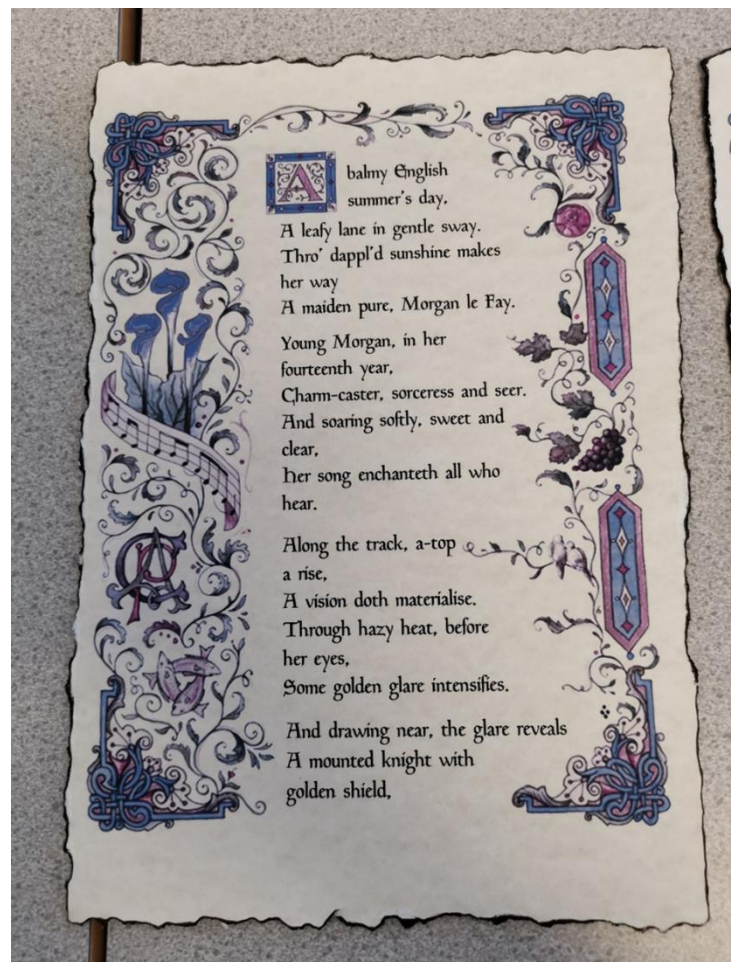 A balmy English
summer's day,
A leafy lane in gentle sway.
Thro' dappl'd sunshine makes
her way
A maiden pure, Morgan le Fay.
Young Morgan, in her
fourteenth year,
Charm-caster, sorceress and seer.
And soaring softly, sweet and
clear,
Her song enchanteth all who
hear.
Along the track, a-top
a rise,
A vision doth materialise.
Through hazy heat, before
her eyes,
Some golden glare intensifies.
And drawing near, the glare reveals
A mounted knight with
golden shield,